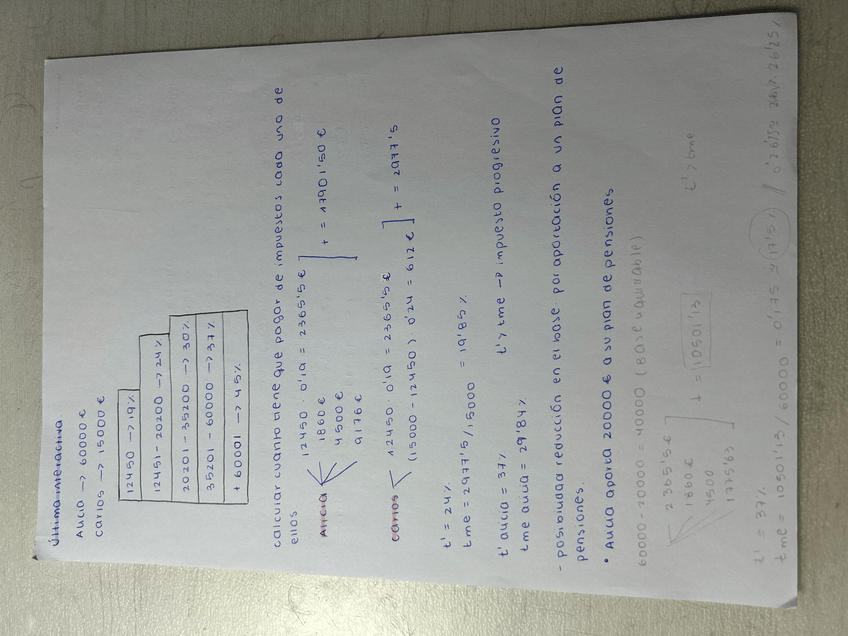 Última interactiva
Alicia → 60000€
Carlos → 15000€
12450 → 19%
12451 - 20200 → 24%
20201 - 35200 → 30%
35201 - 60000 → 37%
+ 60001 → 45%
calcular cuanto tiene que pagar de impuestos cada uno de
ellos
Alicia
12450 · 0'19 = 2365'5 €
1860€
4500€
9176€
+ = 17901'50 €
Carlos
12450 · 0'19 = 2365'5€
(15000 - 12450) · 0'24 = 612€
+ = 2977'5
t' = 24%
tme = 2977'5/15000 = 19'85%
t' alicia = 37%
tme alicia = 29'84%
t' > tme → impuesto progresivo
- posibilidad reducción en el base. por aportación a un plan de
pensiones.
• Alicia aporta 20000€ a su plan de pensiones
60000 - 20000 = 40000 (Base liquidable)
2365'5€
1860€
4500
1775'63
+ = 10501'13
t' = 37%
t' > tme
tme = 10501'13/60000 = 0'175 ≈ 17'5% / 26'25%